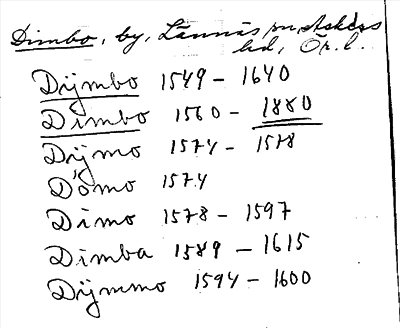 Dimbo, by, Lännäs sn, Askers
hd, Ör. l.
Dijmbo 1549 - 1640
Dimbo 1560 - 1880
Dijmo 1574 - 1578
Domo 1574
Dimo 1578 - 1597
Dimba 1589 - 1615
Dijmmo 1594 - 1600